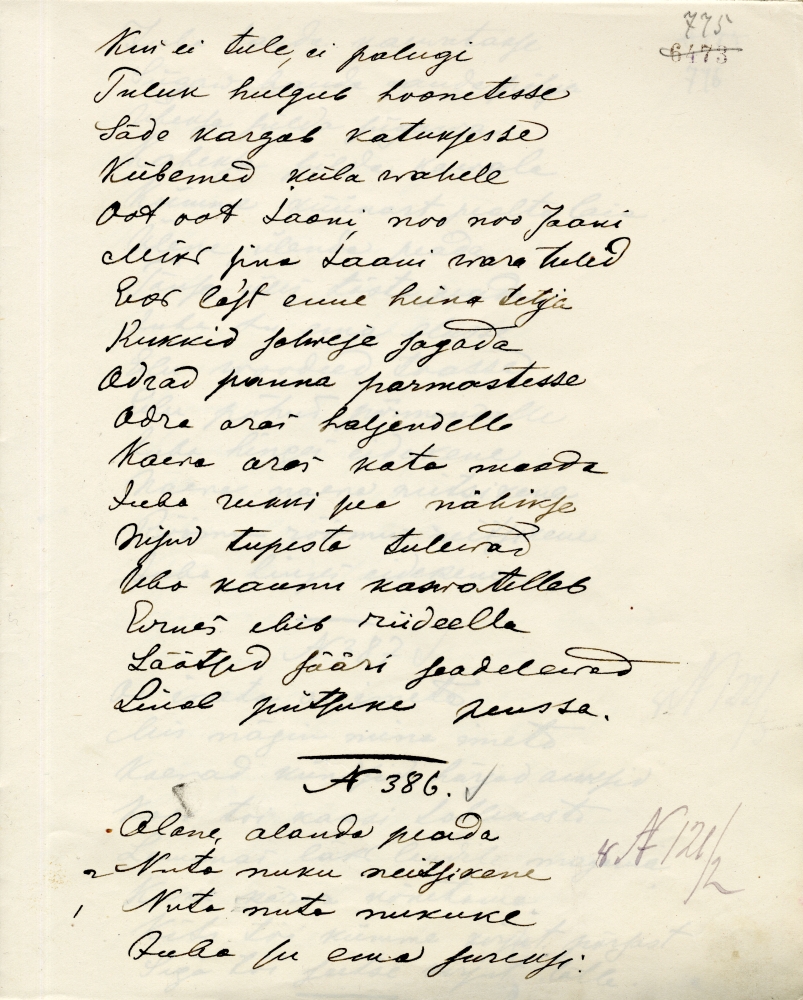 775
6473
776
Kui ei tule, ei palugi
Tuluk hulgub hoonetesse
Säde kargab katuksesse
Kübemed küla wahele
Oot oot Jaani, noo noo Jaani
Miks sina Jaani wara tuled
Eos läst enne heina tetja
Rukkid solweje sagada
Odrad panna parmastesse
Odra oras haljendelle
Kaera oras kata maada
Juba rukki pea nähikse
Nisud tupesta tulewad
Uba kaunu kaswatelleb
Ernes ehib riideella
Läätsed sääri seadelewad
Linal pütsuke peussa.
N 386. ✓
Alane, alanda peada
2 Nuta nuku neitsikene
1 Nuta nuta nukuke
Juba su ema sureksi.
N 121/2